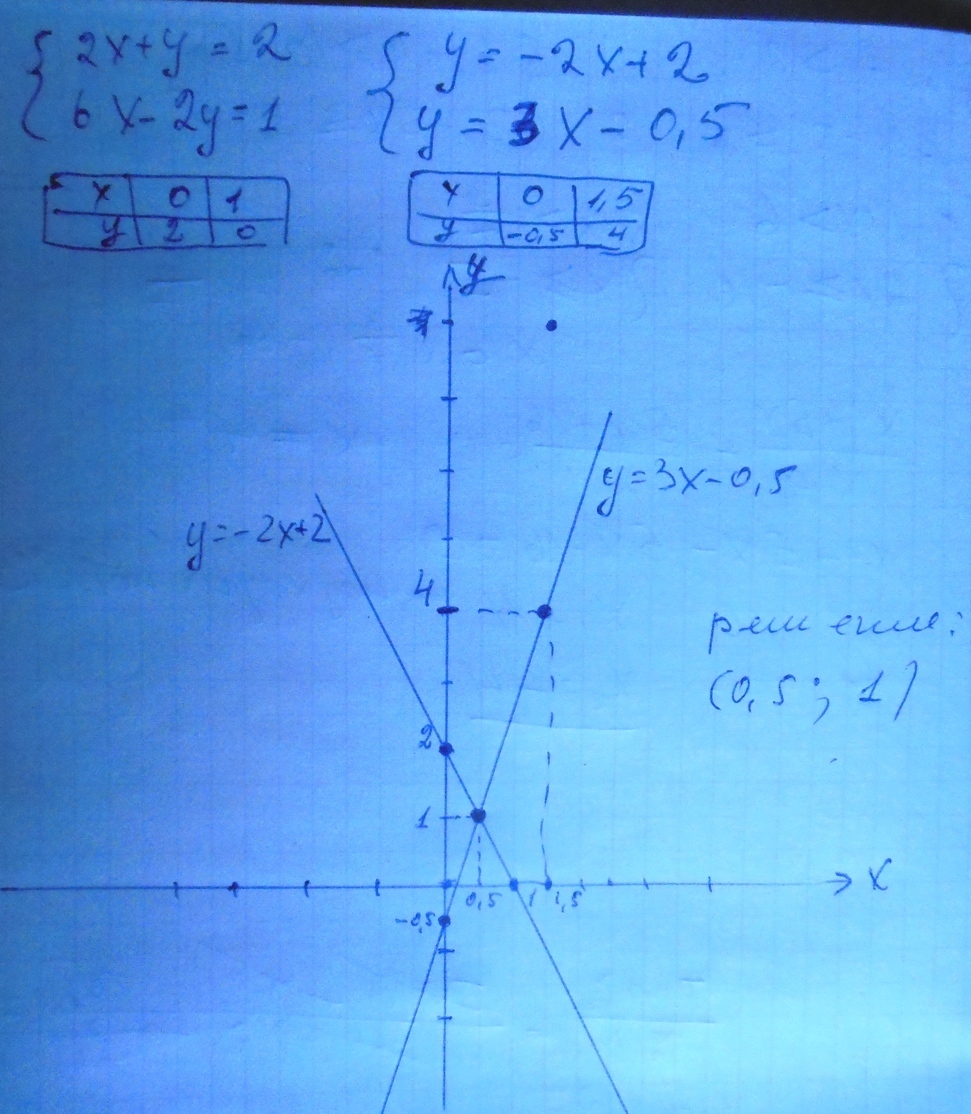 2x+y=2
6x-2y=1
y=-2x+2
y=3x-0,5
x 0 1
y 2 0
x 0 1,5
y -0,5 4
y
y=3x-0,5
y=-2x+2
4
решение:
(0,5; 1)
2
1
x
0,5 1 1,5
-0,5